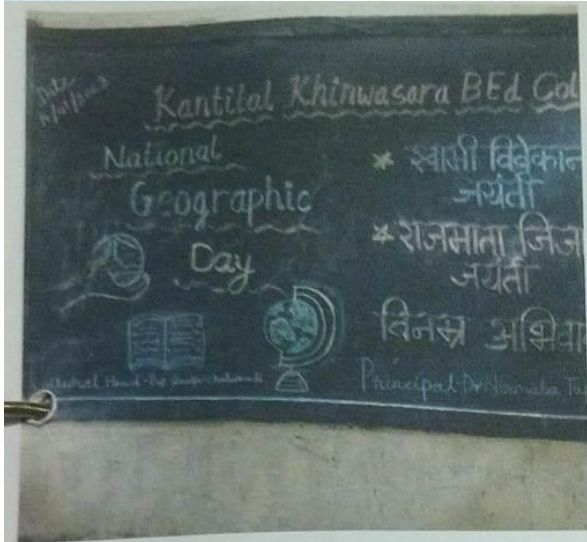 Date
Kantilal Khinwasara BEd Col
National
Geographic
Day
* स्वामी विवेकान
जयंती
* राजमाता जिजा
जयंती
विनम्र अभिवा
Principal Dr Nirmala